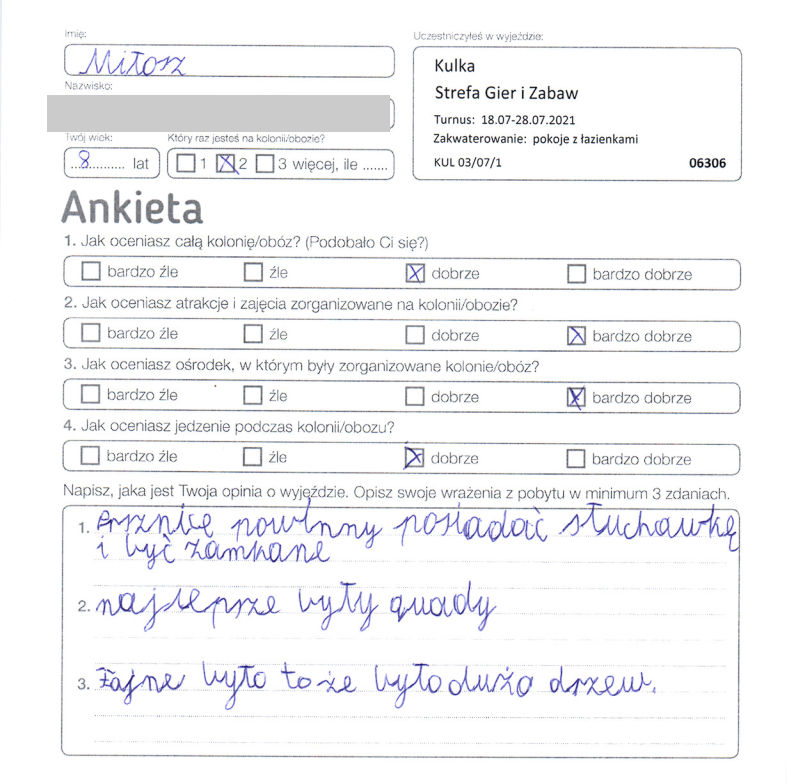 Imię:
Miłosz
Uczestniczyłeś w wyjeździe:
Kulka
Strefa Gier i Zabaw
Turnus: 18.07-28.07.2021
Zakwaterowanie: pokoje z łazienkami
KUL 03/07/1 06306
Nazwisko:
Twój wiek: Który raz jesteś na kolonii/obozie?
...8.......... lat 1 2 3 więcej, ile .......
Ankieta
1. Jak oceniasz całą kolonię/obóz? (Podobało Ci się?)
bardzo źle źle dobrze bardzo dobrze
2. Jak oceniasz atrakcje i zajęcia zorganizowane na kolonii/obozie?
bardzo źle źle dobrze bardzo dobrze
3. Jak oceniasz ośrodek, w którym były zorganizowane kolonie/obóz?
bardzo źle źle dobrze bardzo dobrze
4. Jak oceniasz jedzenie podczas kolonii/obozu?
bardzo źle źle dobrze bardzo dobrze
Napisz, jaka jest Twoja opinia o wyjeździe. Opisz swoje wrażenia z pobytu w minimum 3 zdaniach.
1. Prsznice powinny posiadać słuchawkę
i być zamkane
2. najleprze były quady
3. Fajne było to że było dużo drzew.